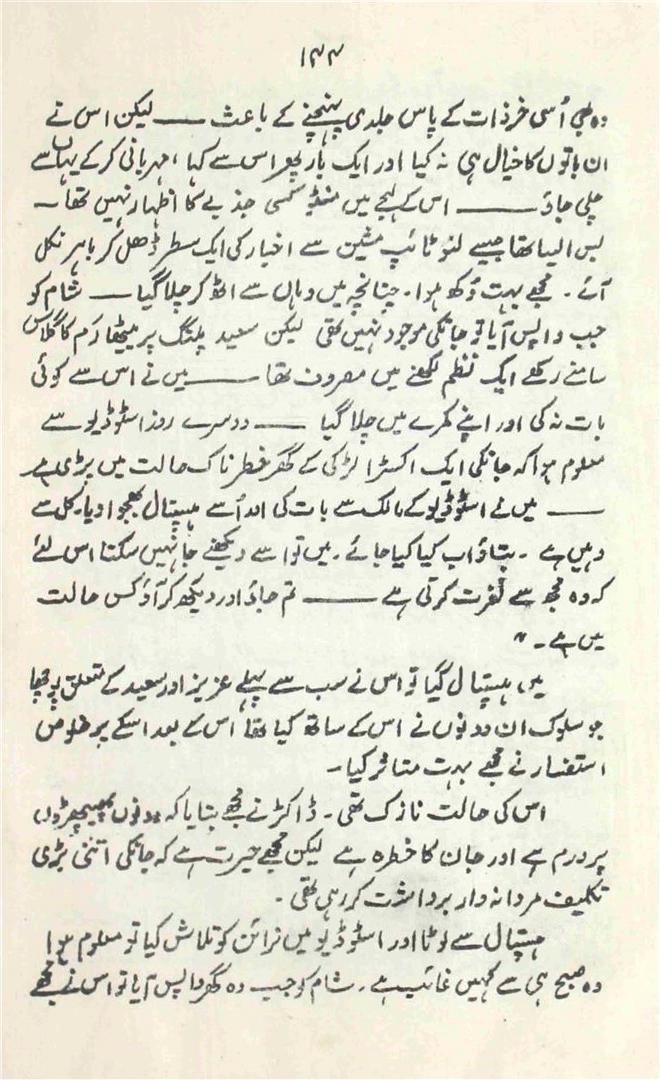 ۱۴۴
وہ بھی اُسی خرذات کے پاس جلدی پہنچنے کے باعث —— لیکن اس نے
ان باتوں کا خیال ہی نہ کیا اور ایک بار پھر اس سے کہا، مہربانی کر کے یہاں سے
چلی جاؤ —— اس کے لہجے میں منٹو کسی جذبے کا اظہار نہیں تھا —
بس ایسا تھا جیسے لنو ٹائپ مشین سے اخبار کی ایک سطر ڈھل کر باہر نکل
آئے۔ مجھے بہت دُکھ ہوا۔ چنانچہ میں وہاں سے اٹھ کر چلا گیا — شام کو
جب واپس آیا تو جانکی موجود نہیں تھی لیکن سعید پلنگ پر بیٹھا رَم کا گلاس
سامنے رکھے ایک نظم لکھنے میں مصروف تھا —— میں نے اس سے کوئی
بات نہ کی اور اپنے کمرے میں چلا گیا —— دوسرے روز اسٹوڈیو سے
معلوم ہوا کہ جانکی ایک اکسٹرا لڑکی کے گھر خطرناک حالت میں پڑی ہے
—— میں نے اسٹوڈیو کے مالک سے بات کی اور اُسے ہسپتال بھجوا دیا۔ کل سے
وہیں ہے۔ بتاؤ اب کیا کیا جائے۔ میں تو اسے دیکھنے جا نہیں سکتا اس لئے
کہ وہ مجھ سے نفرت کرتی ہے —— تم جاؤ اور دیکھ کر آؤ کس حالت
میں ہے۔"
میں ہسپتال گیا تو اس نے سب سے پہلے عزیز اور سعید کے متعلق پوچھا
جو سلوک ان دونوں نے اس کے ساتھ کیا تھا اس کے بعد اسکے پر خلوص
استفسار نے مجھے بہت متاثر کیا۔
اس کی حالت نازک تھی۔ ڈاکٹر نے مجھے بتایا کہ دونوں پھیپھڑوں
پر ورم ہے اور جان کا خطرہ ہے لیکن مجھے حیرت ہے کہ جانکی اتنی بڑی
تکلیف مردانہ وار برداشت کر رہی تھی۔
ہسپتال سے لوٹا اور اسٹوڈیو میں نرائن کو تلاش کیا تو معلوم ہوا
وہ صبح ہی سے کہیں غائب ہے۔ شام کو جب وہ گھر واپس آیا تو اس نے مجھے